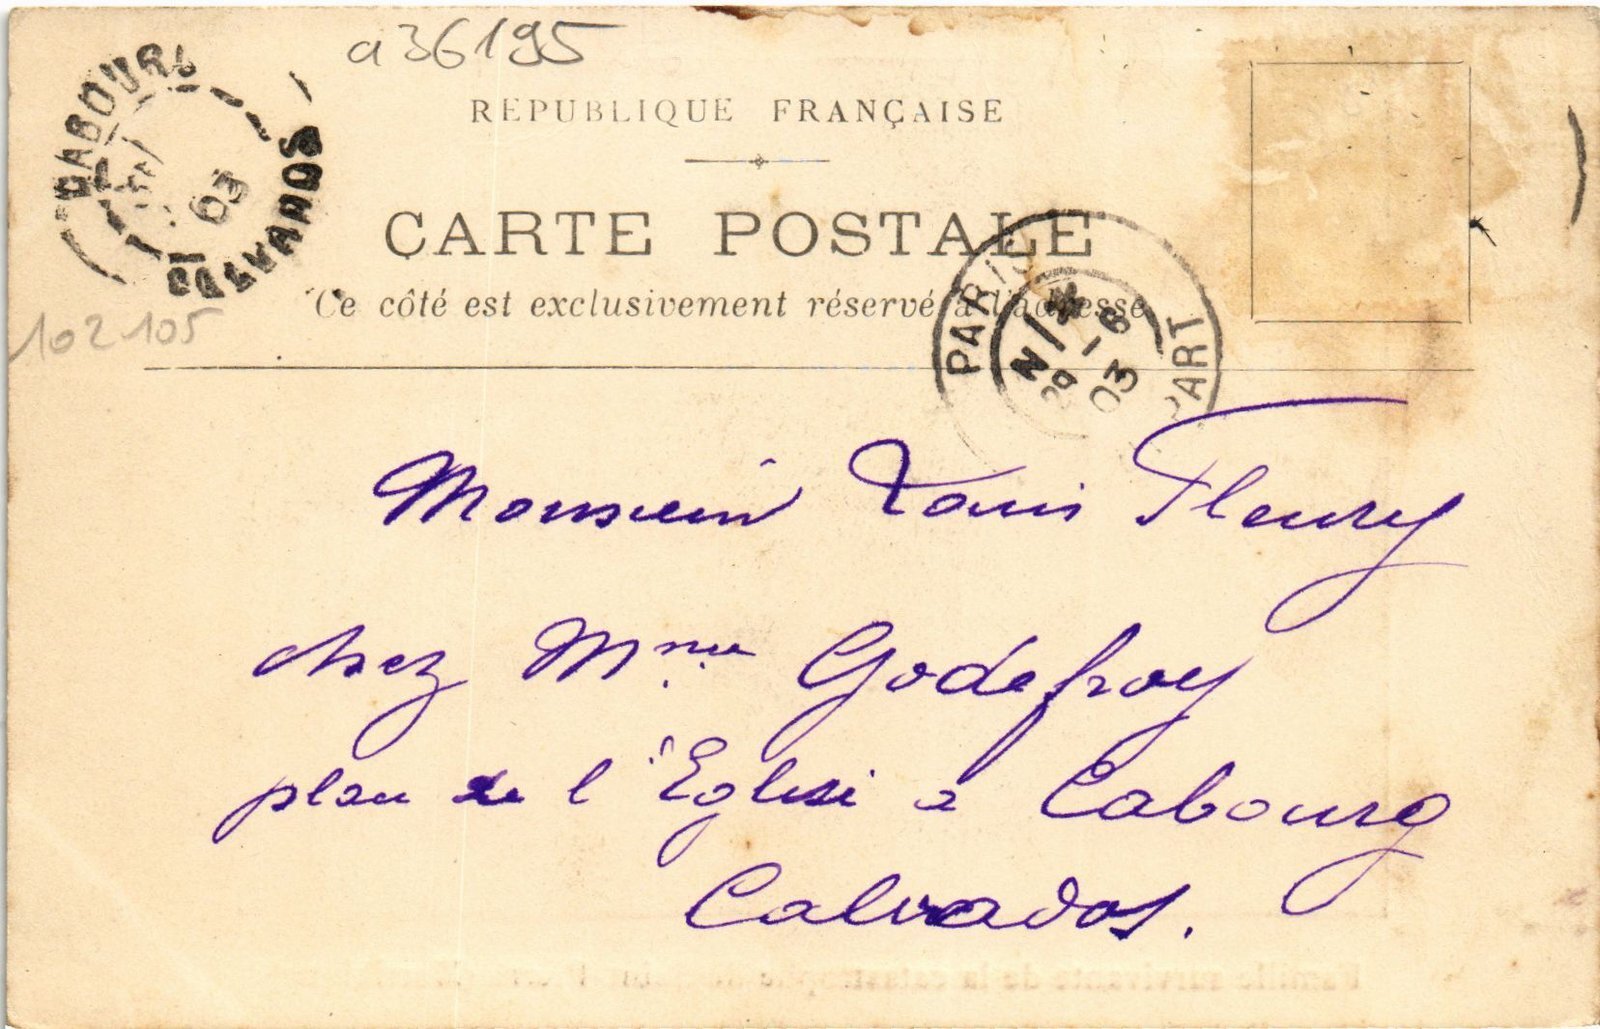 a36195
CABOURG
03
CALVADOS
REPUBLIQUE FRANÇAISE
CARTE POSTALE
Ce côté est exclusivement réservé à l'adresse
102 105
PARIS
8
03
PART
Monsieur Louis Fleury
chez Mme Godefroy
place de l'Eglise a Cabourg
Calvados.